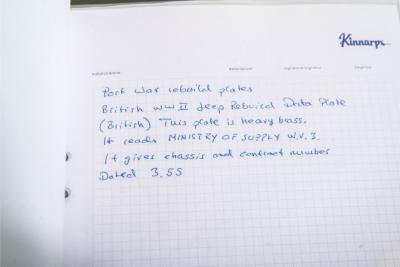 Kinnarps
Post War rebuild plates
British WW II Jeep Rebuild Data Plate
(British) This plate is heavy brass.
It reads MINISTRY OF SUPPLY W.V.3.
It gives chassis and contract number
Dated 3.55